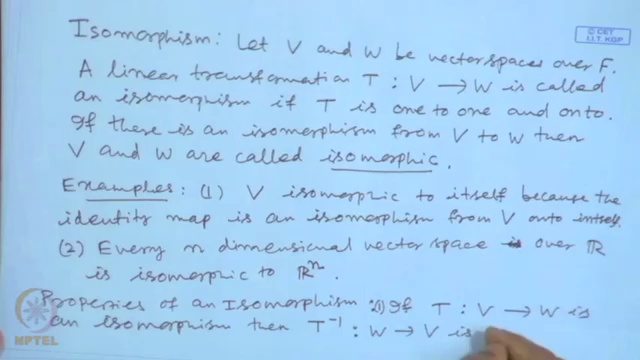 © CET
I.I.T. KGP
Isomorphism: Let V and W be vector spaces over F.
A linear transformation T : V → W is called
an isomorphism if T is one to one and onto.
If there is an isomorphism from V to W then
V and W are called isomorphic.
Examples: (1) V isomorphic to itself because the
identity map is an isomorphism from V onto intself.
(2) Every n dimensional vector space over ℝ
is isomorphic to ℝⁿ.
Properties of an Isomorphism: (1) If T : V → W is
an isomorphism then T⁻¹ : W → V is
NPTEL